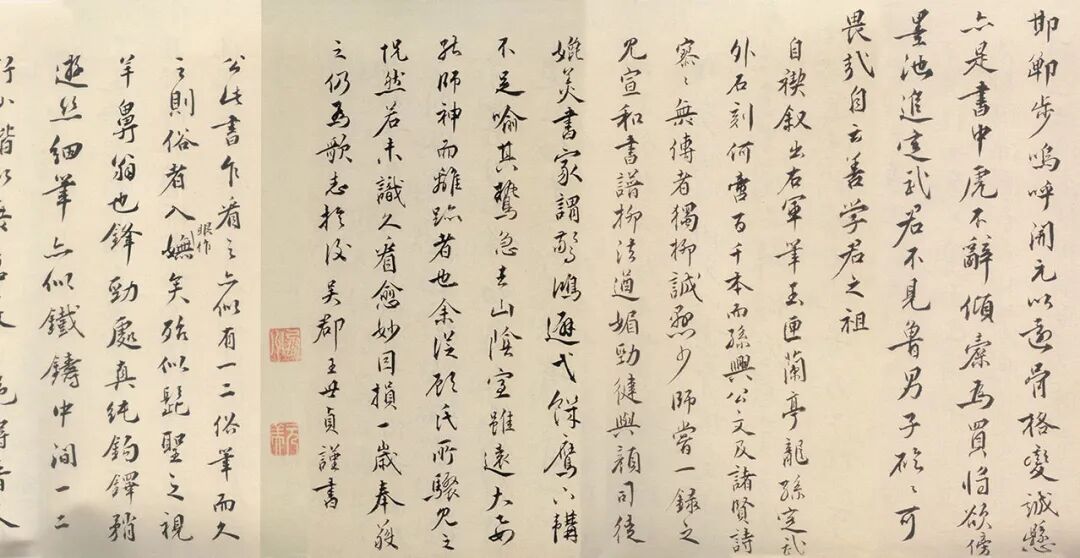 邯鄲步嗚呼開元以還骨格變誠懸
亦是書中虎不辭傾橐為買將欲傍
墨池追定武君不見魯男子硁〻可
畏哉自云善学君之祖
自禊叙出右軍筆玉匣蘭亭龍孫定武
外石刻何啻百千本而孫興公文及諸賢詩
寥〻無傳者獨柳誠懸少師嘗一録之
見宣和書譜柳法遒媚勁健與顔司徒
媲美書家謂驚鴻避弋饑鷹下韝
不足喻其鷙急去山陰室雖遠大要
能師神而離跡者也余從顧氏所驟見之
怳然若未識久看愈妙因損一歲奉獲
之仍為歌志於後吳郡王世貞謹書
公此書乍看之亦似有一二俗筆而久
之則俗者入眼作嫵矣殆似髭聖之視
羊鼻翁也鋒勁處真純鉤鐸矟
遊絲細筆亦似鐵鑄中間一二